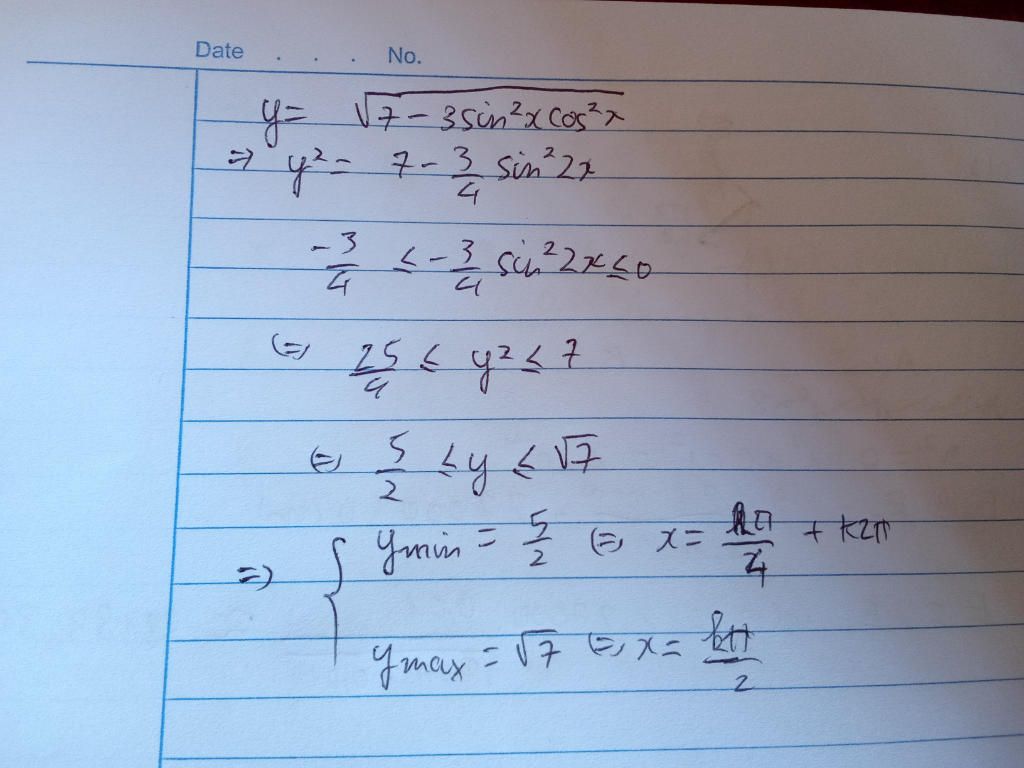 Date . . . No.
y = √(7 - 3sin²x cos²x)
=> y² = 7 - 3/4 sin²2x
-3/4 ≤ -3/4 sin²2x ≤ 0
(=) 25/4 ≤ y² ≤ 7
(=) 5/2 ≤ y ≤ √7
=> { ymin = 5/2 (=) x = π/4 + k2π
ymax = √7 (=) x = kπ/2